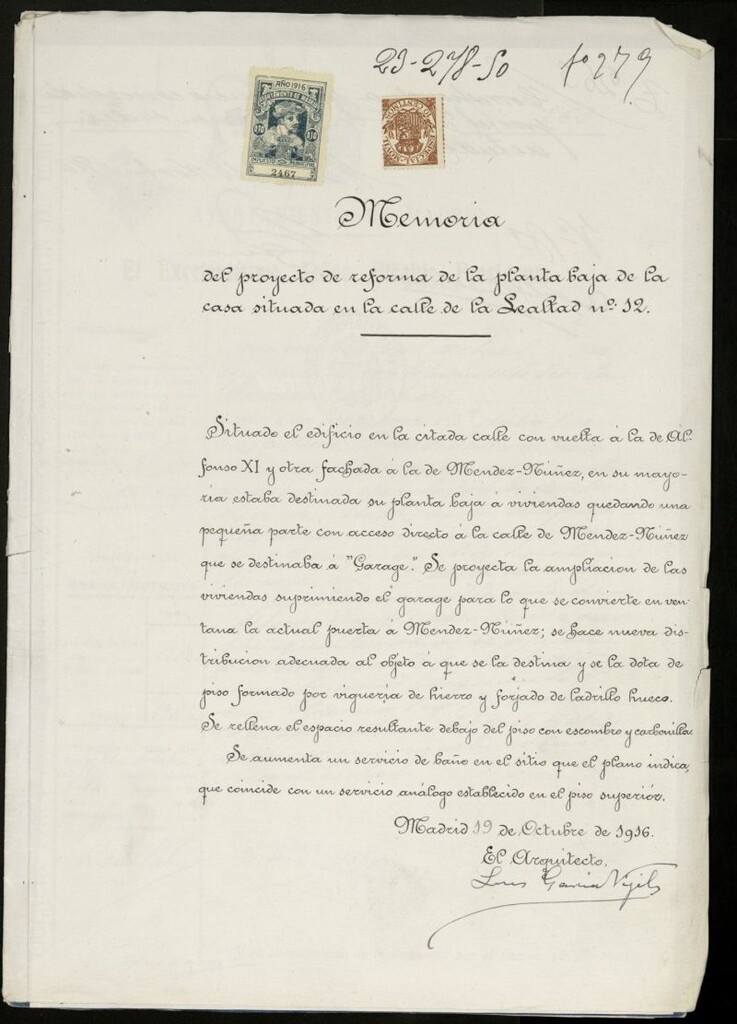 23-278-50 fº 279
AÑO 1916
AYUNTAMIENTO DE MADRID
0'10 0'10
2467
Memoria
del proyecto de reforma de la planta baja de la
casa situada en la calle de la Lealtad nº. 12.
Situado el edificio en la citada calle con vuelta á la de Al-
fonso XI y otra fachada á la de Mendez-Núñez, en su mayo-
ria estaba destinada su planta baja á viviendas quedando una
pequeña parte con acceso directo á la calle de Mendez-Núñez
que se destinaba á "Garage". Se proyecta la ampliacion de las
viviendas suprimiendo el garage para lo que se convierte en ven-
tana la actual puerta á Mendez-Núñez; se hace nueva dis-
tribucion adecuada al objeto á que se la destina y se la dota de
piso formado por vigueria de hierro y forjado de ladrillo hueco.
Se rellena el espacio resultante debajo del piso con escombro y carbonilla.
Se aumenta un servicio de baño en el sitio que el plano indica,
que coincide con un servicio análogo establecido en el piso superior.
Madrid 19 de Octubre de 1916.
El Arquitecto,
Luis Garcia Vigil